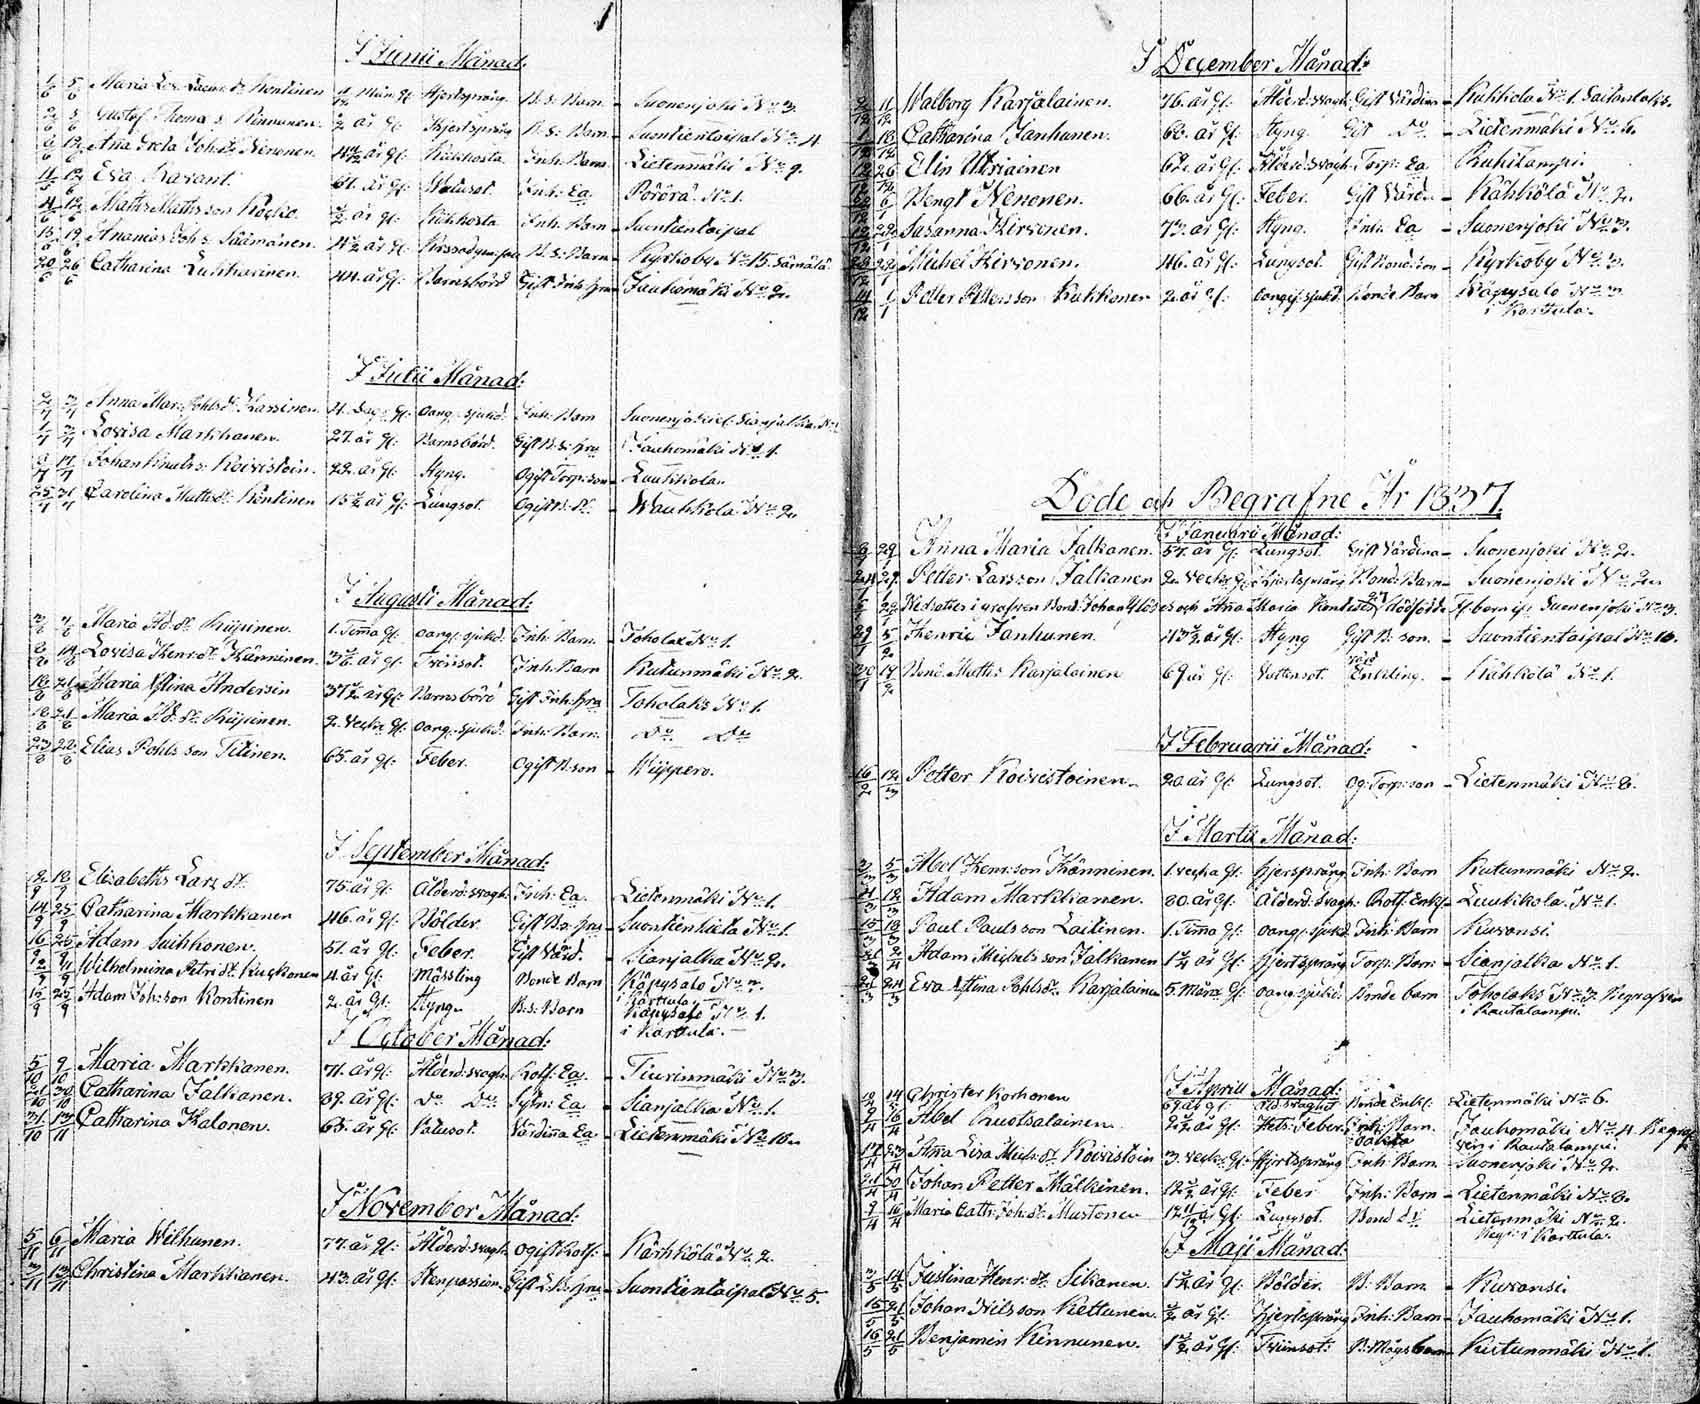 I Junii Månad:
1/6 5/6 Maria Kontinen 11/12 Mån: gl: Hjertsprång B:S: Barn – Suonenjoki No 3.
2/6 5/6 Gustaf Thoma s. Kinnunen. 1/2 år gl: Hjertsprång B:S: Barn – Suontientaipal No 4
6/6 12/6 Ana Greta Joh: dr Nenonen. år gl: Kikhosta Inh: Barn – Lietenmäki No 9.
12/6 Eva Kavant. 61. år gl: Inh: Ea Pörörä No 1.
4/6 12/6 Matts Mattsson Kocko. år gl: Kikhosta Inh: Barn – Suontientaipal
19/6 Ananias Joh s. Säämänen. år gl: B:S: Barn – Kyrkoby No 15. Sämälä
20/6 26/6 Catharina Lukkarinen. 44. år gl: Barnsbörd Gift Inh: hru – Jauhomäki No 2.
I Julii Månad:
2/7 3/7 Anna Mar: Pohls dr Karsinen. 4. Dag: gl: Oang: sjukd: Inh: Barn Suonenjoki
1/7 3/7 Lovisa Markkanen. 27. år gl: Barnsbörd. Gift B:S: hru Jauhomäki No 1.
17/7 Johan Knuts s: Koivistoin. 22. år gl: Styng. Ogift Torp: son – Luukkola.
25/7 31/7 Carolina Matts dr Köntinen 15 1/2 år gl: Lungsot. Ogift B: dr – Wauhkola No 2.
I Augusti Månad:
3/8 7/8 Maria Ad: dr Kupinen. 1. Tima gl: Oang: sjukd: Inh: Barn. – Toholax No 1.
8/8 14/8 Lovisa Henr: dr Känninen. år gl: Trånsot. Inh: Barn Kutunmäki No 2.
18/8 21/8 Maria Stina Andersin 37 1/2 år gl: Barnsbörd Gift Inh: hru Toholaks No 1.
18/8 21/8 Maria P: dr Kupinen. 2. Vecka gl: Oang: sjukd: Inh: Barn. Do Do
23/8 28/8 Elias Pohls son Titinen. 65. år gl: Feber. Ogift B:son – Wiippero.
I September Månad:
12/9 18/9 Elisabeths Lars dr. 75. år gl: Ålderd: svagh: Inh: Ea. Lietenmäki No 1.
14/9 25/9 Catharina Markkanen 46. år gl: Bölder Gift B:S: hru – Suontienkieta No 1.
16/9 25/9 Adam Suihkonen. 51. år gl: Feber. Gift Värd. – Sianjalka No 2.
2/9 4/9 Wilhelmina Petri dr Kuckkonen 4. år gl: Mässling Bonde Barn Käpysalo No 3.
i Karttula.
15/9 25/9 Adam Joh: son Kontinen 2. år gl: Styng. B:S: Barn Käpysalo No 1.
i Karttula.
I October Månad:
5/10 9/10 Maria Markkanen. 71. år gl: Ålderd: svagh: Rotf: Ea. – Tiurinmäki No 3.
21/10 30/10 Catharina Jalkanen. 69. år gl: Do Do Sytn: Ea – Sianjalka No 1.
31/10 13/11 Catharina Kalonen. 65. år gl: Vatusot. Värdinna Ea – Lietenmäki No 16.
I November Månad:
5/11 6/11 Maria Wilhunen. 77. år gl: Ålderd: svagh: Ogift Rotf: – Kärkkölä No 2.
3/11 13/11 Christina Markkanen. 43. år gl: Stenpassion Gift L:B: hru – Suontientaipal No 5.
I December Månad:
2/12 11/12 Walborg Karjalainen. 76. år gl: Ålderd: svagh: Gift Värdinn – Kukkola No 1. Saitontaks.
1/12 18/12 Catharina Janhunen. 60. år gl: Styng. Gift Do – Lietenmäki No 6.
26/12 Elin Ukiainen 62. år gl: Ålderd: svagh: Torp: Ea Kukilampi
6/1 Bengt Nenonen. 66. år gl: Feber. Gift Värd – Kähkölä No 2.
Susanna Hirvonen. 73. år gl: Styng. Inh: Ea – Suonenjoki No 3.
Michel Hirvonen. 46. år gl: Lungsot. Gift Bond: son – Kyrkoby No 3.
14/12 1/1 Petter Pettersson Kukkonen 2. år gl: Oangif: sjukd: Bonde Barn Käpysalo No 3
i Karttula.
Döde och Begrafne År 1837.
I Januarii Månad:
29/1 Anna Maria Jalkanen. 57. år gl: Lungsot. Gift Värdina – Suonenjoki No 2.
24/1 29/1 Petter Larsson Jalkanen 2. Veck: gl: Hjertsprång Bond: Barn – Suonenjoki No 2.
29/1 Nedsattes i grafven Bond: Johan och Ana Maria dödfödde Suonenjoki No 3.
29/1 5/2 Henric Janhunen. 43 1/2 år gl: Styng Gift B: son. – Suontientaipal No 16.
30/1 17/2 Bond: Matts Karjalainen 69 år gl: Vattensot. Enkling. – Kähkölä No 1.
I Februarii Månad:
16/2 12/3 Petter Koivistoinen. 20. år gl: Lungsot. Og: Torp: son – Lietenmäki No 8.
I Martii Månad:
3/3 5/3 Abel Henr: son Känninen. 1. vecka gl: Hjersprång Inh: Barn Kutunmäki No 2.
11/3 12/3 Adam Markkanen. 80. år gl: Ålderd: svagh: Rotf: Enkl – Luukikola No 1.
15/3 19/3 Paul Pauls son Laitinen. 1. Tima gl: Oang: sjukd: Inh: Barn Kuvansi
2/4 Adam Michels son Jalkanen 1 1/4 år gl: Hjertsprång Torp: Barn: – Sianjalka No 1.
21/3 24/3 Eva Stina Pohls dr. Karjalainen 5. Mån: gl: Oang: sjukd: Bonde barn Toholaks No 3 Begrafven
i Rautalampi.
I Aprill Månad:
14/4 Christer Korhonen 69. år gl: Åld: svaghet Bonde Enkl: Lietenmäki No 6.
9/4 16/4 Abel Ruotsalainen. 2 1/2 år gl: Hets: Feber Inh: Barn. Jauhomäki No 4. Begraf
ven i Rautalampi.
17/4 23/4 Ana Lisa Mich: dr Koivistoin 3. veck: gl: Hjertsprång Inh: Barn. Suonenjoki No 2.
21/4 30/4 Johan Petter Mälkinen. 12 1/2 år gl: Feber Inh: Barn – Lietenmäki No 8.
9/4 16/4 Maria Cath: Joh: dr: Mustonen 12 11/12 år gl: Lungsot. Bond: dr Lietenmäki No 2.
Begr: i Karttula.
I Maji Månad:
3/5 14/5 Justina Henr: dr. Sikanen. 1 1/2 år gl: Bölder. B: Barn. – Kuvansi.
15/5 21/5 Johan Nilsson Kettunen. 1/2 år gl: Hjertsprång Inh: Barn – Jauhomäki No 1.
16/5 21/5 Benjamin Kinnunen. 1 1/2 år gl: Trånsot: B: Mågs barn – Kutunmäki No 1.